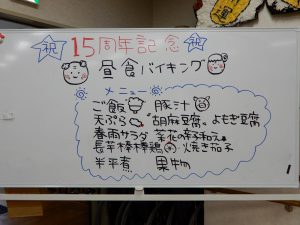 祝 15周年記念 祝
昼食バイキング
メニュー
ご飯 豚汁
天ぷら 胡麻豆腐 よもぎ豆腐
春雨サラダ 菜花の辛子和え
長芋棒棒鶏 焼き茄子
半平煮 果物